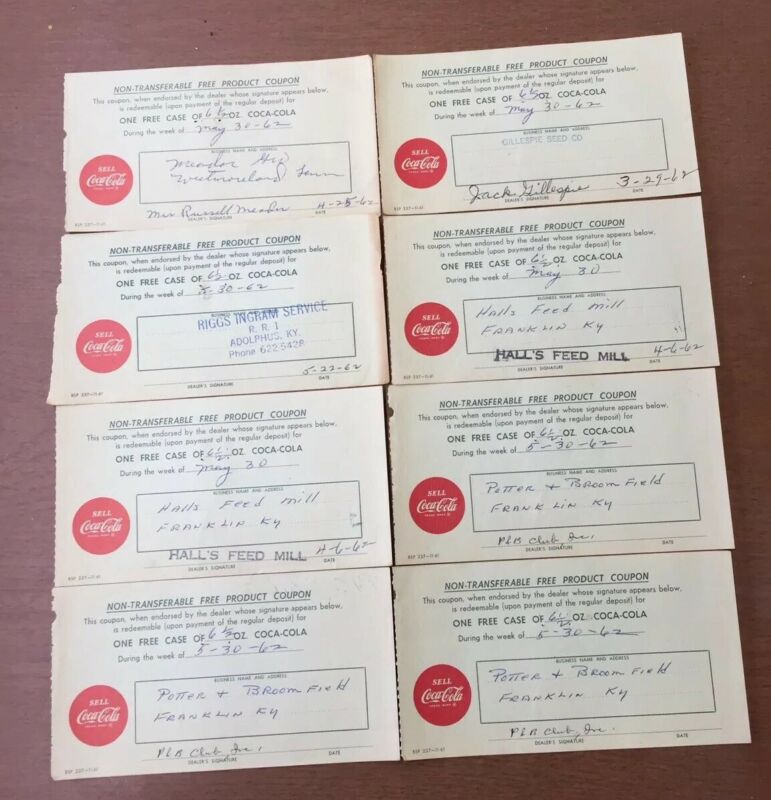 NON-TRANSFERABLE FREE PRODUCT COUPON
This coupon, when endorsed by the dealer whose signature appears below,
is redeemable (upon payment of the regular deposit) for
ONE FREE CASE OF 6½ OZ COCA-COLA
During the week of May 30-62
BUSINESS NAME AND ADDRESS
SELL
Coca-Cola
Meador Gro
Westmoreland Tenn
Mrs Russell Meador 4-25-62
BSP 237-11-61 DEALER'S SIGNATURE DATE
NON-TRANSFERABLE FREE PRODUCT COUPON
This coupon, when endorsed by the dealer whose signature appears below,
is redeemable (upon payment of the regular deposit) for
ONE FREE CASE OF 6½ OZ COCA-COLA
During the week of May 30-62
BUSINESS NAME AND ADDRESS
GILLESPIE SEED CO
SELL
Coca-Cola
Jack Gillespie 3-29-62
BSP 237-11-61 DEALER'S SIGNATURE DATE
NON-TRANSFERABLE FREE PRODUCT COUPON
This coupon, when endorsed by the dealer whose signature appears below,
is redeemable (upon payment of the regular deposit) for
ONE FREE CASE OF 6½ OZ COCA-COLA
During the week of 5-30-62
RIGGS INGRAM SERVICE
R. R. 1
ADOLPHUS, KY.
Phone 622-5428
SELL
Coca-Cola
5-22-62
BSP 237-11-61 DEALER'S SIGNATURE DATE
NON-TRANSFERABLE FREE PRODUCT COUPON
This coupon, when endorsed by the dealer whose signature appears below,
is redeemable (upon payment of the regular deposit) for
ONE FREE CASE OF 6½ OZ COCA-COLA
During the week of May 30
BUSINESS NAME AND ADDRESS
SELL
Coca-Cola
Halls Feed Mill
Franklin Ky
HALL'S FEED MILL 4-6-62
BSP 237-11-61 DEALER'S SIGNATURE DATE
NON-TRANSFERABLE FREE PRODUCT COUPON
This coupon, when endorsed by the dealer whose signature appears below,
is redeemable (upon payment of the regular deposit) for
ONE FREE CASE OF 6½ OZ COCA-COLA
During the week of May 30
BUSINESS NAME AND ADDRESS
SELL
Coca-Cola
Halls Feed Mill
Franklin Ky
HALL'S FEED MILL 4-6-62
BSP 237-11-61 DEALER'S SIGNATURE DATE
NON-TRANSFERABLE FREE PRODUCT COUPON
This coupon, when endorsed by the dealer whose signature appears below,
is redeemable (upon payment of the regular deposit) for
ONE FREE CASE OF 6½ OZ COCA-COLA
During the week of 5-30-62
BUSINESS NAME AND ADDRESS
SELL
Coca-Cola
Potter + Broom Field
Franklin Ky
P&B Club, Inc.
BSP 237-11-61 DEALER'S SIGNATURE DATE
NON-TRANSFERABLE FREE PRODUCT COUPON
This coupon, when endorsed by the dealer whose signature appears below,
is redeemable (upon payment of the regular deposit) for
ONE FREE CASE OF 6½ OZ COCA-COLA
During the week of 5-30-62
BUSINESS NAME AND ADDRESS
SELL
Coca-Cola
Potter + Broom Field
Franklin Ky
P&B Club, Inc.
BSP 237-11-61 DEALER'S SIGNATURE DATE
NON-TRANSFERABLE FREE PRODUCT COUPON
This coupon, when endorsed by the dealer whose signature appears below,
is redeemable (upon payment of the regular deposit) for
ONE FREE CASE OF 6½ OZ COCA-COLA
During the week of 5-30-62
BUSINESS NAME AND ADDRESS
SELL
Coca-Cola
Potter + Broom Field
Franklin Ky
P&B Club, Inc.
BSP 237-11-61 DEALER'S SIGNATURE DATE